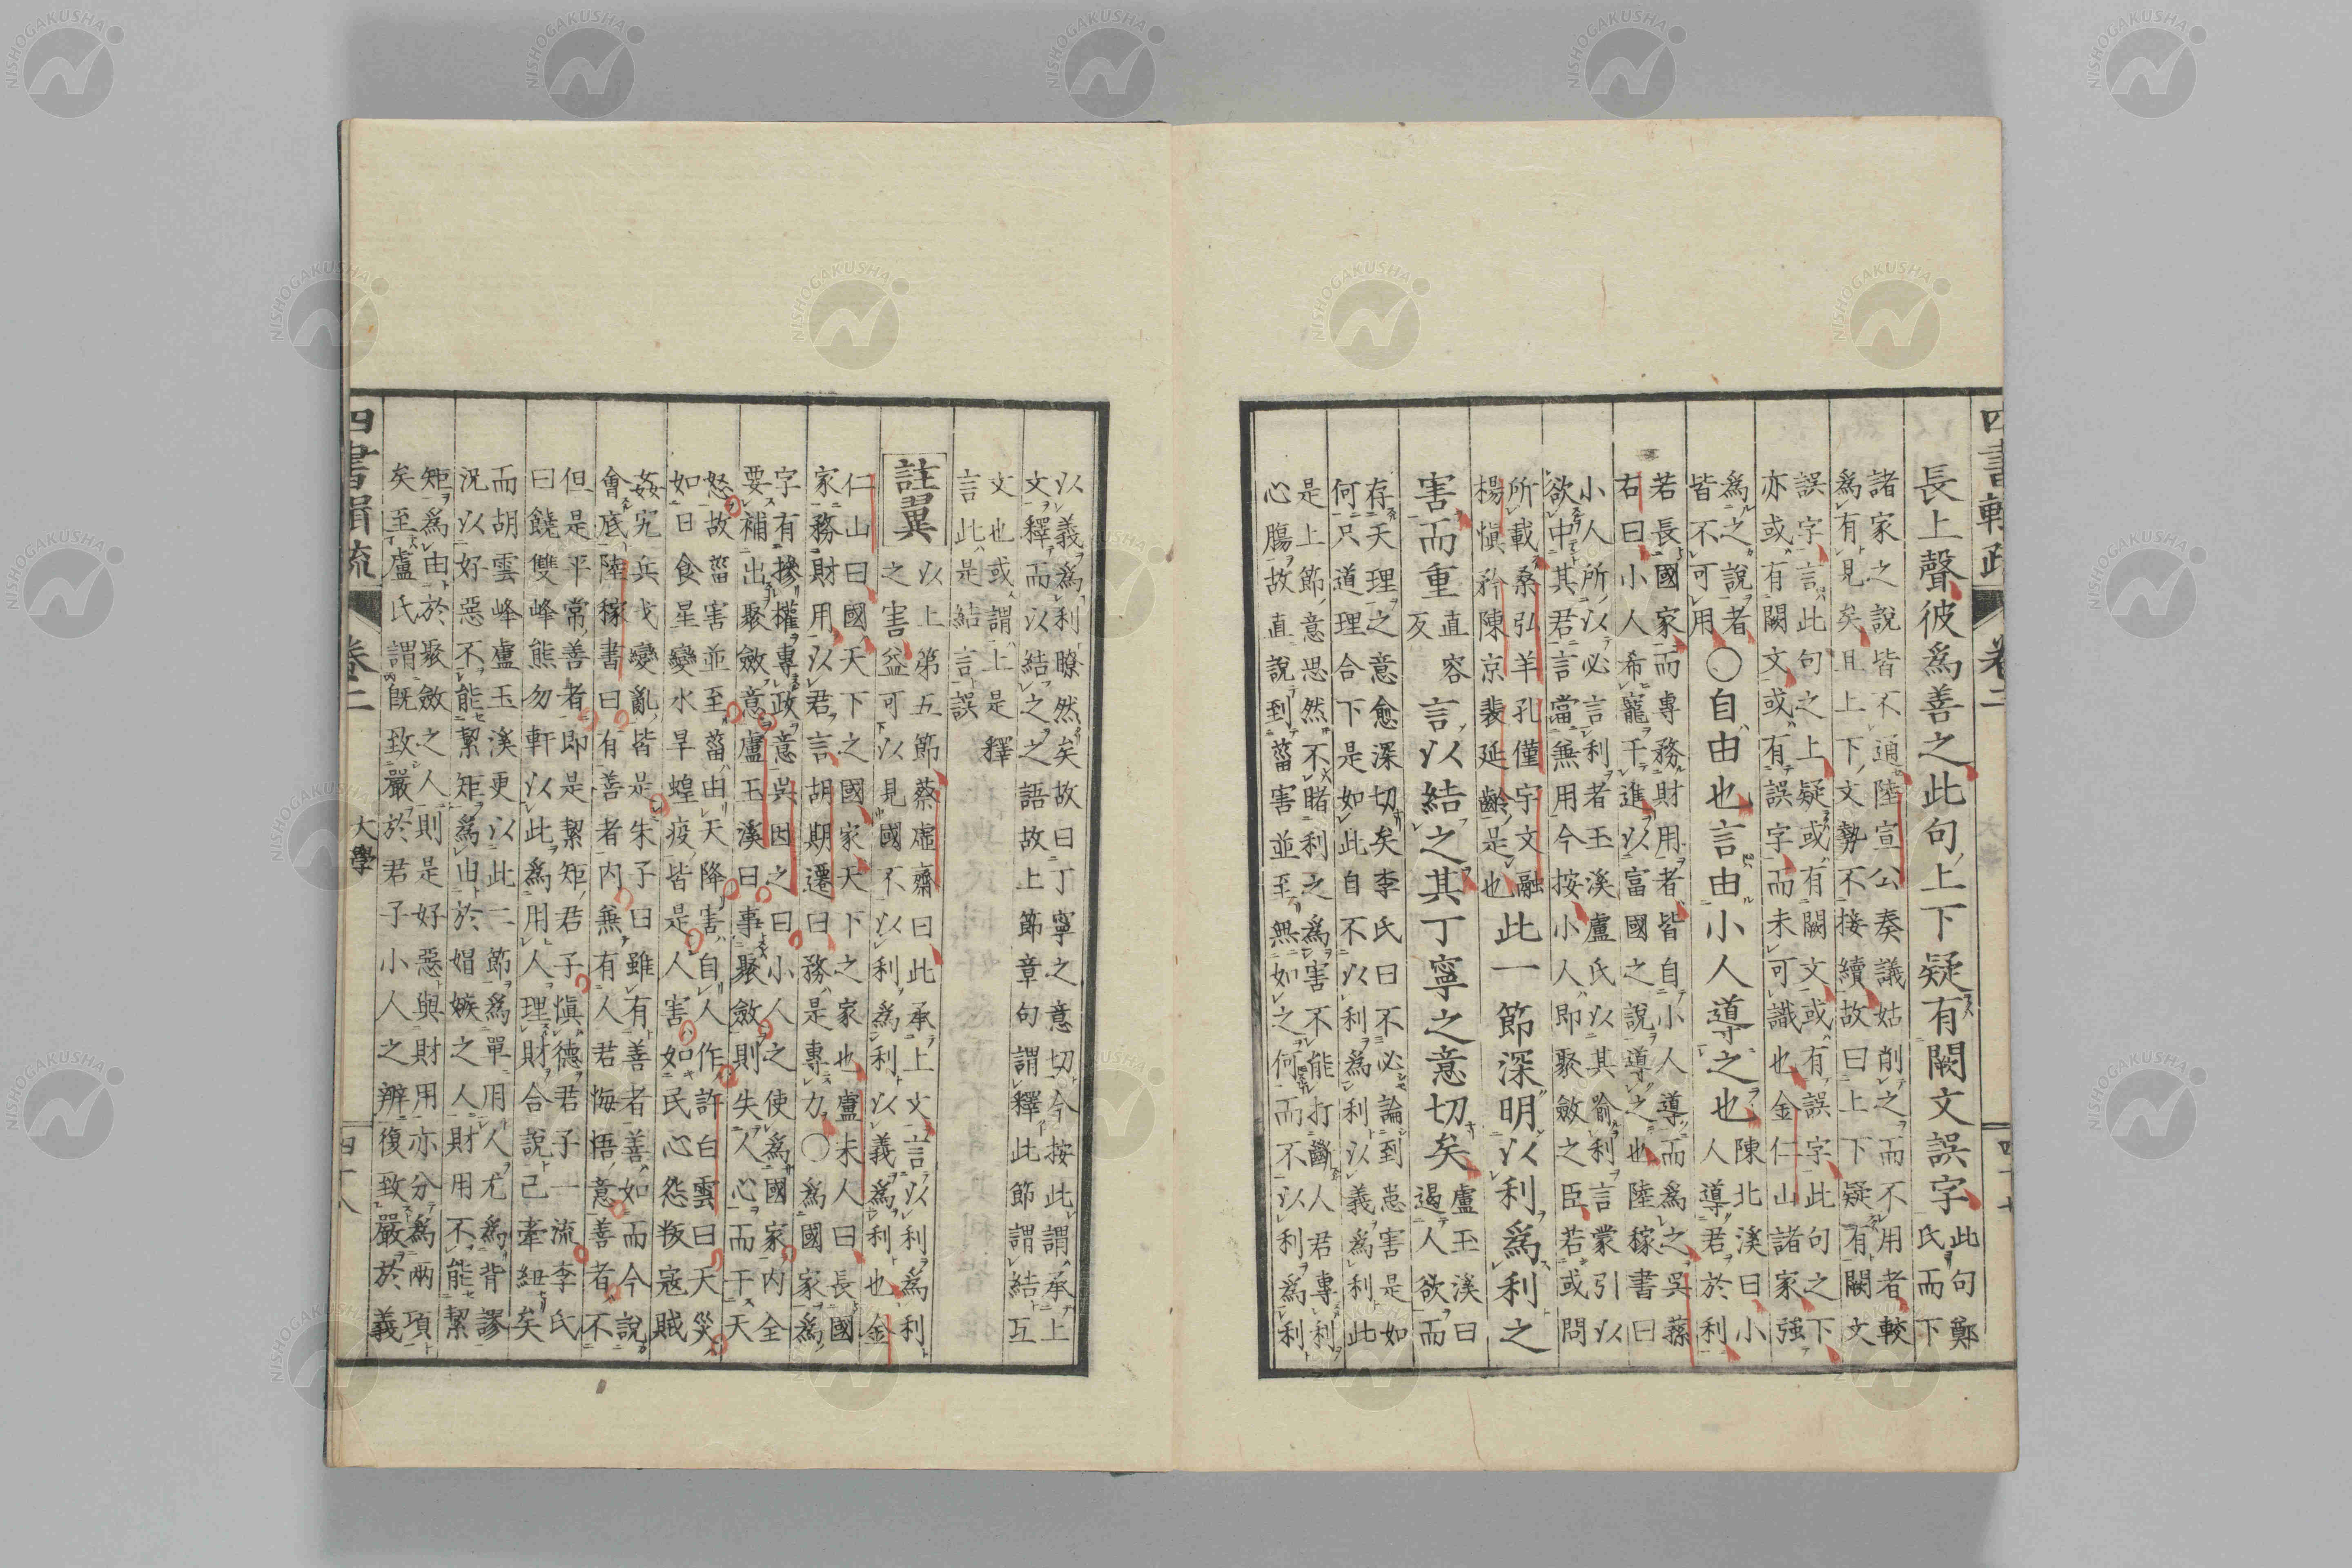 四書輯疏
卷二
四十七
長上聲彼爲善之此句上下疑有闕文誤字
此句鄭
氏而下
諸家之說皆不通陸宣公奏議姑削之而不用者較
爲有見矣且上下文勢不接續故曰上下疑有闕文
誤字言此句之上疑或有闕文或有誤字此句之下
亦或有闕文或有誤字而未可識也金仁山諸家强
爲之說者
皆不可用
○自由也言由小人導之也
陳北溪曰小
人導君於利
若長國家而專務財用者皆自小人導而爲之吳蓀
右曰小人希寵干進以富國之說導之也陸稼書曰
小人所以必言利者玉溪盧氏以其喻利言蒙引以
欲中其君言當無用今按小人即聚斂之臣若或問
所載桑弘羊孔僅宇文融
楊愼矜陳京裴延齡是也
此一節深明以利爲利之
害而重
直容
反
言以結之其丁寧之意切矣
盧玉溪曰
遏人欲而
存天理之意愈深切矣李氏曰不必論到恙害是如
何只道理合下是如此自不以利爲利以義爲利此
是上節意思然不賭利之爲害不能打斷人君專利
心膓故直說到菑害並至無如之何而不以利爲利
以義爲利瞭然矣故曰丁寧之意切今按此謂承上
文釋而以結之之語故上節章句謂釋此節謂結互
文也或謂上是釋
言此是結言誤
註翼
以上第五節蔡虛齋曰此承上文言以利爲利
之害益可以見國不以利爲利以義爲利也金
仁山曰國天下之國家天下之家也盧未人曰長國
家務財用以君言胡期遷曰務是專力○爲國家爲
字有摻權專政意吳因之曰小人之使爲國家內全
要補出聚斂意盧玉溪曰事聚斂則失人心而干天
怒故菑害並至菑由天降害自人作許白雲曰天災
如日食星變水旱蝗疫皆是人害如民心怨叛寇賊
姦宄兵戈變亂皆是朱子曰雖有善者善如而今說
會底陸稼書曰有善者內無有人君悔悟意善者不
但是平常善者即是絜矩君子愼德君子一流李氏
曰饒雙峰熊勿軒以此爲用人理財合說已牽紐矣
而胡雲峰盧玉溪更以此二節爲單用人尤爲背謬
況以好惡不能絜矩爲由於娼嫉之人財用不能絜
矩爲由於聚斂之人則是好惡與財用亦分爲兩項
矣至盧氏謂既致嚴於君子小人之辨復致嚴於義
四書輯疏
卷二
大學
四十八